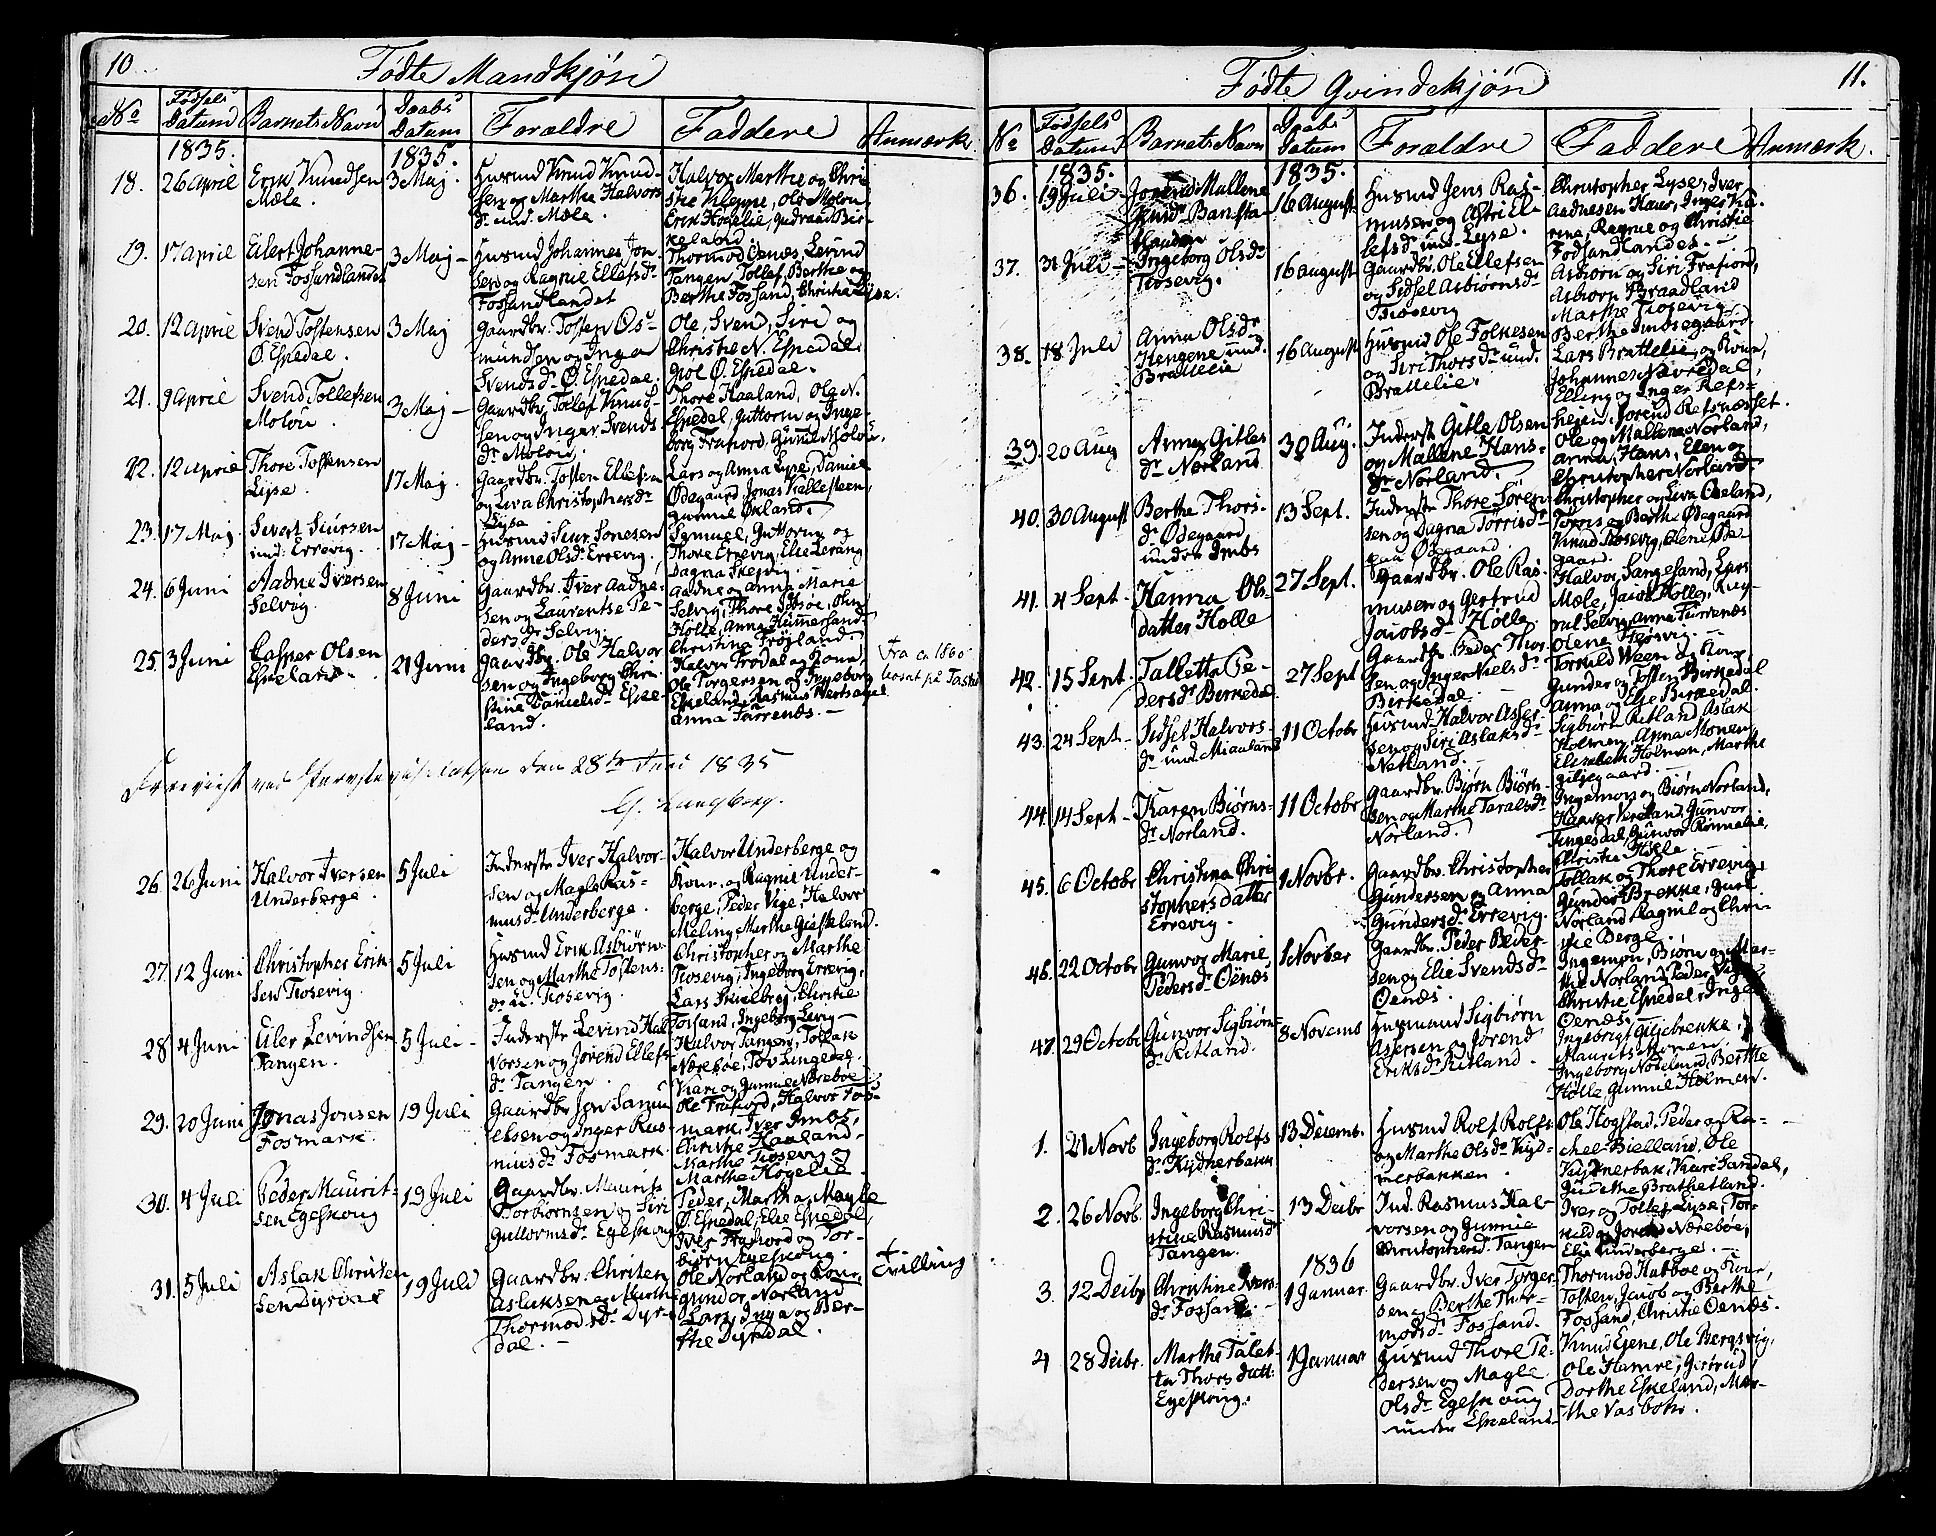 10
Fødte Mandkjøn
No
Fødsels Datum
Barnets Navn
Daabs Datum
Forældre
Faddere
Anmærk
1835.
1835.
18. 26 April
Erik Knudsen
Mæle.
3 Maj.
Husmd Knud Knud-
sen og Martha Halvors
dr. und. Mæle.
Halvor, Marthe og Chri-
stie Kleppe, Ole Molou,
Erik Hogelie, Gudraad Bir-
keland
19. 17 April
Eilert Johanne-
sen Fossandlandet
3 Maj
Husmd Johannes Jon
sen og Ragnie Ellefsdr
Fossandlandet
Thormod Oenæs, Levind
Tangen, Tollef, Berthe og
Berthe Fossand, Christie Lyse.
20. 12 April
Svend Tostensen
Ø. Espedal.
3 Maj
Gaardbr. Tosten Os-
mundsen og Inga
Svendsdr Ø. Espedal.
Ole, Svend, Siri og
Christie N. Espedal
Ø. Espedal.
21. 9 April
Svend Tollefsen
Molou
3 Maj
Gaardbr. Tollef Knud-
sen og Inger Svends
dr Molou.
Thore Haaland, Ola N.
Espedal, Guttorm og Inge-
borg Frafiord, Gunnil Molou,
22. 12 April
Thore Tostensen
Lyse.
17 Maj.
Gaardbr. Tosten Ellefsen
og Liva Christophersdr
Lyse
Lars og Anna Lyse, Daniel
Ødegaard, Jonas Kallesteen,
Gunnil Øxland.
23. 17 Maj
Sivert Siursen
und: Errevig.
17 Maj
Husmd Siur Jonesen
og Anne Olsdr Errevig,
Samuel, Guttorm og
Thore Errevig, Elie Levang
Dagna Skervig.
24. 6 Juni
Aadne Iversen
Selvig.
8 Juni
Gaardbr. Iver Aadne-
sen og Laurentse Pe-
dersdr Selvig.
Aadne og Anna Marie
Selvig, Thore
Holle, Anna Hummersand
Christine Frøyland
25. 3 Juni
Casper Olsen
Eskeland.
21 Juni
Gaardbr. Ole Halvor
sen og Ingeborg Chri-
stine Danielsdr Eske
land.
Halvor Frødal og Kone,
Ole Torgersen og Ingeborg
Eskeland, Rasmus
Anna Torrenæs.
Fra ca 1860
bosat på
den 28de Juni 1835
26. 26 Juni
Halvor Iversen
Underberge.
5 Juli
Inderste Iver Halvor-
sen og Magla Ras-
musdr Underberge.
Halvor Underberge og
Kone, og Ragnie Under-
berge, Peder Vige, Halvor
Meling, Marthe Gieskeland.
27. 12 Juni
Christopher Erik
sen Tiosevig
5 Juli
Husmd Erik Asbiørn-
sen og Marthe Tostens-
dr u. Tiosevig.
Christopher og Marthe
Tiosevig, Ingeborg Errevig,
Lars Christie
Fossand, Ingeborg
28 4 Juni
Eiler Levindsen
Tangen.
5 Juli
Inderste Levind Hal
vorsen og Jørend Ellefs
dr Tangen
Halvor Tangen, Tollak
Nærebøe, Tov Lingedal.
Kari og Gunnil Nærebøe
29. 20 Juni
Jonas Jonsen
Fosmark.
19 Juli
Gaardbr Jon Samu
elsen og Inger Ras-
musdr Fosmark
Ole Frafiord, Halvor Fos-
mark, Iver Imbs,
Christie Haaland
Marthe Tiosevig og
Marthe Hogelie
30. 4 Juli
Peder Maurit-
sen Egeskoug
19 Juli
Gaardbr. Maurits
Torbiornsen og Siri
Guttormsdr Egeskoug
Peder, Martha, Magle
Ø. Espedal, Elie Espedal,
Iver Frafiord og Tor-
biørn Egeskoug.
31. 5 Juli
Aslak Christen
sen Dyrdal
19 Juli
Gaardbr: Christen
Aslaksen og Marth
Thormodsdr Dyr-
dal.
Ole Norland og Kone,
Norland
Lars, Inga og Ber-
the Dyrdal.
Tvilling
11.
Fødte Qvindekjøn
No
Fødsels Datum
Barnets Navn
Daabs Datum
Forældre
Faddere
Anmærk.
1835.
1835.
36. 19 Juli
Jorend Mallene
Jensdr
16 August
Husmd Jens Ras-
musen og Astri El-
lefsdr und. Lyse.
Christopher Lyse, Iver
Aadnesen
rina, Ragnie og Christie
Fossandlandet.
37. 31 Juli
Ingeborg Olsdr
Tiosevig.
16 August
Gaardbr. Ole Ellefsen
og Sidsel Asbiørnsdr
Tiosevig
Asbiorn og Siri Frafiord,
Asbiorn Braadland
Marthe Tiosevig
Berthe Imbsegaard.
38. 18 Juli
Anna Olsdr
Hengene und.
Brattelie
16 August
Husmd Ole Folkesen
og Siri Thorsdr und.
Brattelie.
Lars Brattelie og Kone,
Johannes Nævredal
Elling og Inger Refs-
heien, Jorend Refsnæsset.
39. 20 Aug
Anna Gitles
dr Norland
30 Aug.
Inderst Gitle Olsen
og Mallene Hans-
dr Norland.
Ole og Mallena Norland,
Anna, Hans, Elen og
Christopher Norland
40. 30 August
Berthe Thors-
dr Ødegaard
under Imbs
13 Sept.
Inderste Thore Søren
sen og Dagna Torrisdr
paa Ødegaard
Christopher og Liva Oseland,
Torris og Berthe Ødegaard
Knud Tiosevig, Elene Øde-
gaard.
41. 4 Sept.
Hanna Ols-
datter Holle
27 Sept.
Gaardbr. Ole Ras-
musen og Gertrud
Jacobsdr Holle.
Halvor Sangesand, Lars
Mæle, Jacob Holle, Rag-
Selvig, Anna Torrenæs
Olena
42. 15 Sept.
Talletta Pe-
dersdr Birkedal
27 Sept
Gaardbr. Peder Thor
sen og Inger Nielsdr
Birkedal
Torkild Ween og Kone,
Gunder og Tosten Birkedal
Anna og Else Birkedal.
43. 24 Sept.
Sidsel Halvors-
dr und. Miaaland
11 Octobr
Husmd Halvor Asser-
sen og Siri Aslaksdr
Retland.
Sigbiørn Ritland, Aslak
Holmen, Anna Monen,
Elisabeth Holmen, Marthe
Giljegaard.
44. 14 Sept.
Karen Biørns-
dr Norland.
11 Octobr
Gaardbr. Biørn Biørn-
sen og Marthe Taralsdr
Norland.
Ingemor og Biørn Norland,
Haaver Gunvor
Tengesdal, Gunvor Rommelie,
Christie Holle
45. 6 Octobr
Christina Chri
stophersdatter
Errevig.
1 Novbr.
Gaardbr. Christopher
Gundersen og Anna
Gundersdr Errevig.
Tollak og Thore Errevig,
Gunder Brekke,
Norland, Ragnil og Chri-
stie Berge.
46. 22 Octobr
Gunvor Marie,
Pedersdr Oenæs
1 Novber
Gaardbr. Peder Peder-
sen og Elie Svendsdr
Oenæs.
Ingemor, Biørn og Mar-
the Norland, Peder Vige
Christie Espedal, Inga
Oenæs.
47. 29 Octobr
Gunvor Sigbiørns-
dr Ritland.
8 Novems
Husmand Sigbiørn
Assersen og Jorend
Eriksdr Ritland.
Ingebrigt Giljebrekke,
Maurits Monen,
Ingeborg Nobeland, Berthe
Holle, Gunnil Holmen.
1. 21 Novb
Ingeborg Rolfs
dr Kydnerbakk
13 Decemb.
Husmd Rolf Rolfs
og Marthe Olsdr Kyd-
nerbakken
Ole Hogstad, Peder og Ra-
chel Bielland, Ole
Kydnerbak, Kari Sandal,
Brathetland.
2. 26 Novb.
Ingeborg Chri-
stine Rasmusdr
Tangen.
13 Decbr
Ind. Rasmus Hal-
vorsen og Gunnie
Christophersdr Tangen
Iver og Tollef Lyse, Tor-
kild og Jorend Nærebøe,
Elie Underberge.
1836
3. 12 Decbr
Christine Ivers-
dr Fossand.
1 Januar.
Gaardbr. Iver Torger-
sen og Berthe Thor-
modsdr Fossand.
Thormod Hatbøe og Kone,
Tosten, Jacob og Berthe
Fossand, Christie Oenæs.
4 28 Decbr.
Marthe Talet-
ta Thorsdatt.
Egeskoug.
1 Januar
Husmd Thore Pe-
dersen og Magla
Olsdr Egeskoug
under Eskeland
Knud Eiene, Ole Bergsvig,
Ole Hamre, Gertrud,
Dorthe Eskeland, Mar-
the Vasbotn.